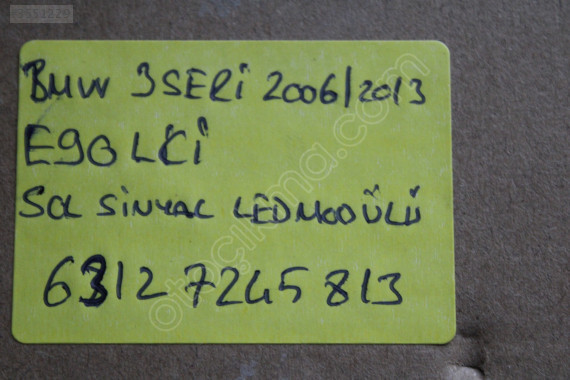 BMW 3SERİ 2006/2013
E90 LCİ
SOL SİNYAL LED MODÜLÜ
63127245813